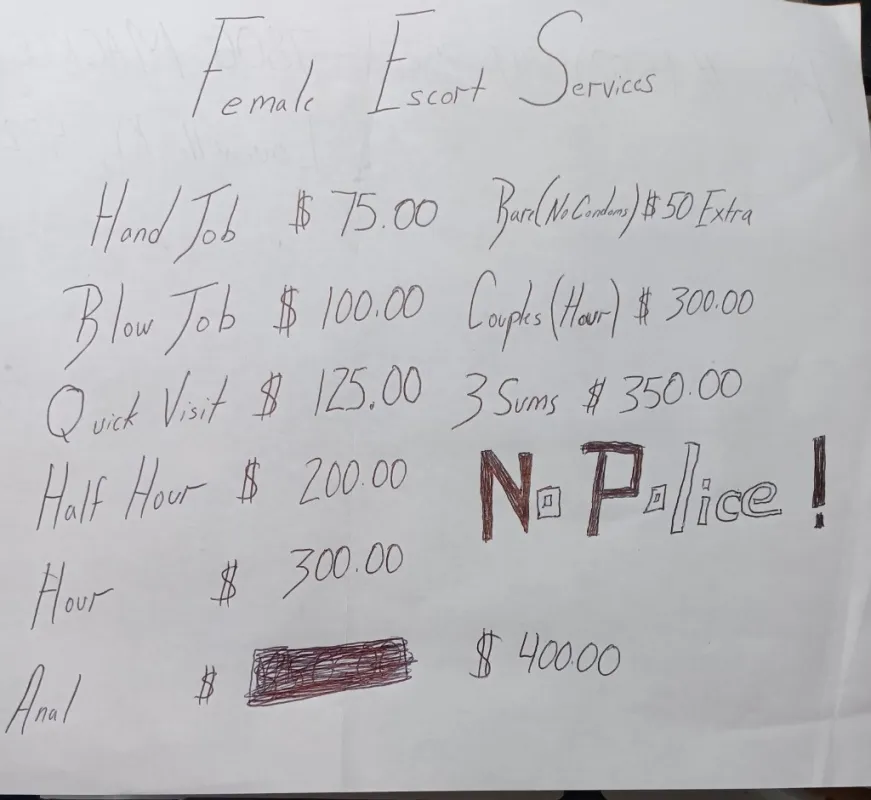 Female Escort Services
Hand Job $ 75.00 Bare(No Condoms) $50 Extra
Blow Job $ 100.00 Couples (Hour) $ 300.00
Quick Visit $ 125.00 3 Sums $ 350.00
Half Hour $ 200.00 No Police!
Hour $ 300.00
Anal $ $ 400.00